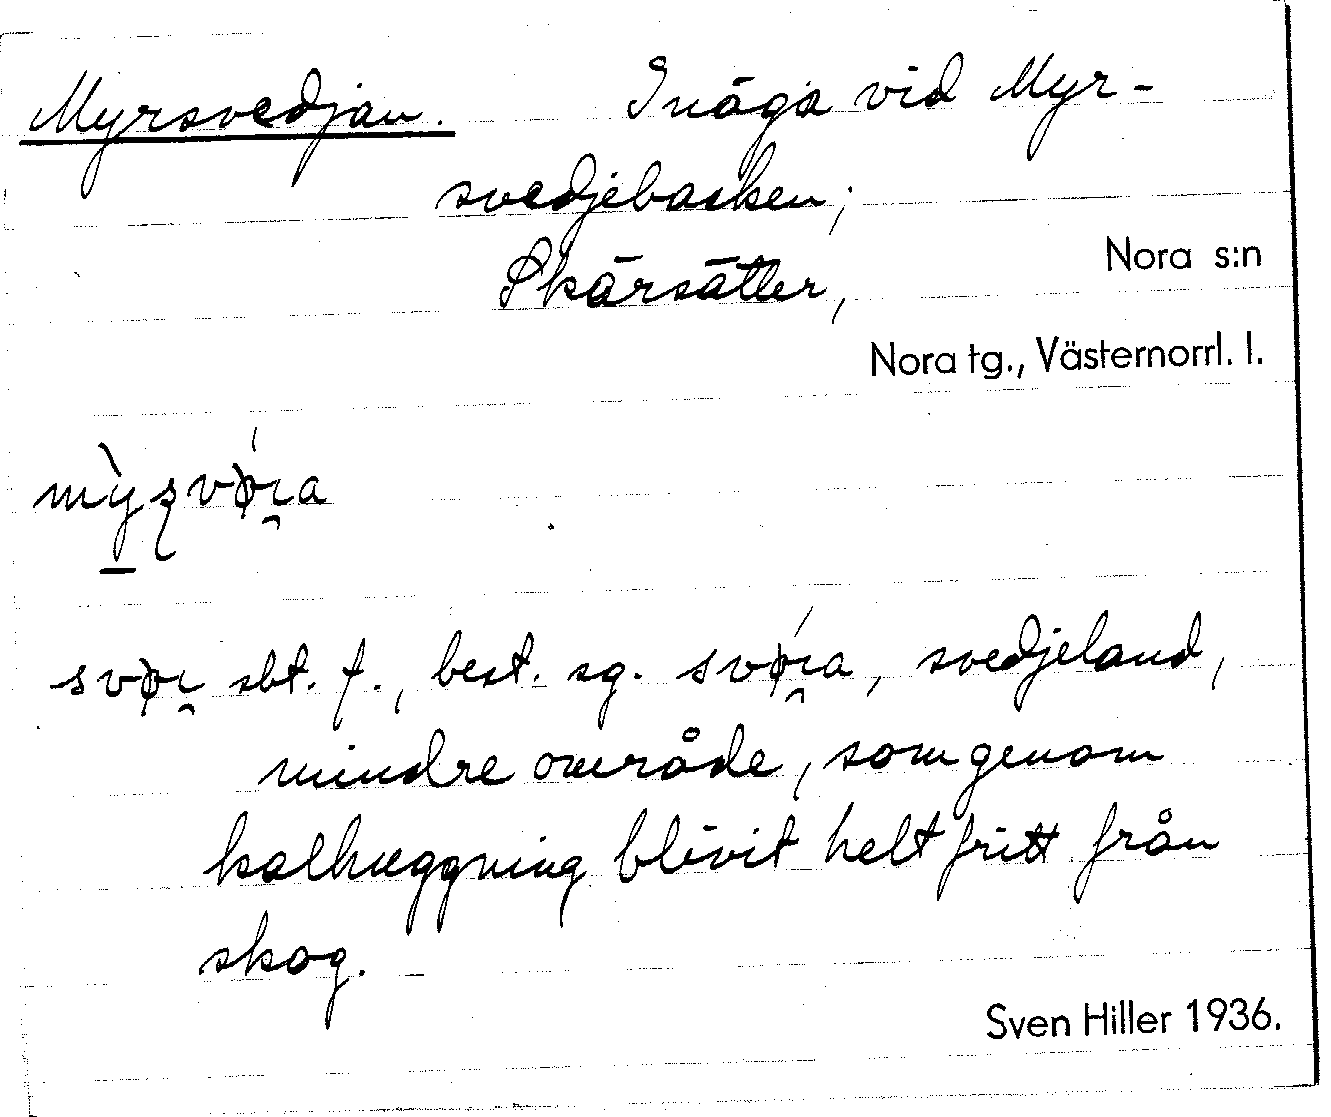 Myrsvedjan. Inäga vid Myr-
svedjebacken;
Skärsätter,
Nora s:n
Nora tg., Västernorrl. l.
sbt. f., best. sg. svedjeland,
mindre område, som genom
kalhuggning blivit helt fritt från
skog.
Sven Hiller 1936.